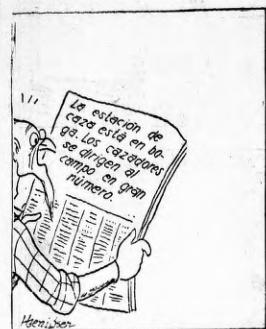 La estación de
caza está en bo-
ga. Los cazadores
se dirigen al
campo en gran
número.